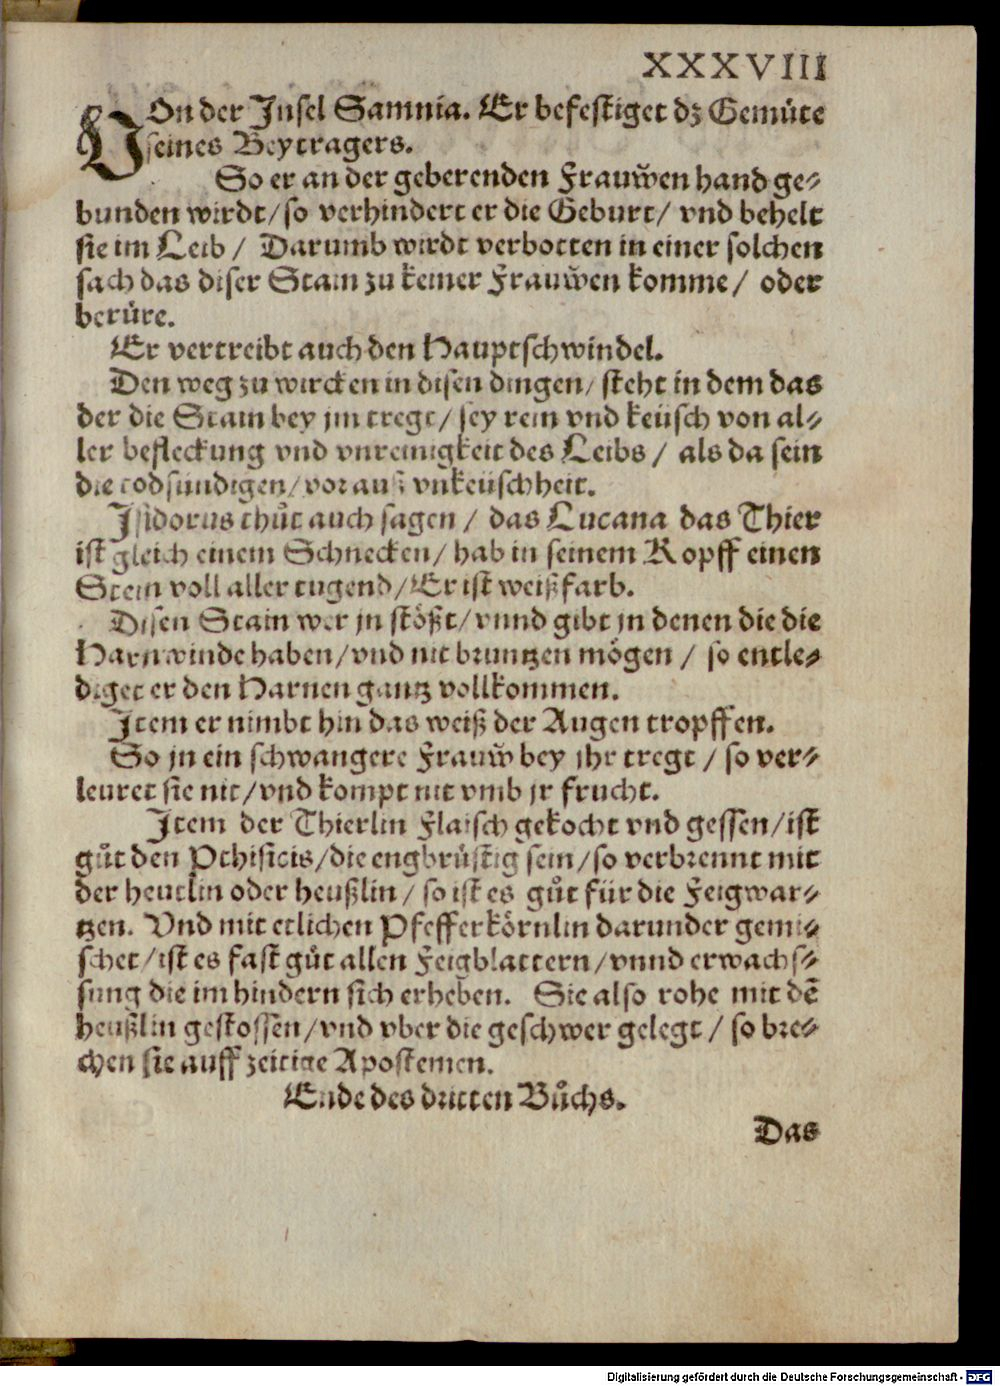 XXXVIII
VOn der Insel Samnia. Er befestiget dz Gemuͤte
seines Beytragers.
So er an der geberenden Frauw̃en hand ge⸗
bunden wirdt/so verhindert er die Geburt/ vnd behelt
sie im Leib/ Darumb wirdt verbotten in einer solchen
sach das diser Stain zu keiner Frauw̃en komme/ oder
beruͤre.
Er vertreibt auch den Hauptschwindel.
Den weg zu wircken in disen dingen/ steht in dem das
der die Stain bey jm tregt/sey rein vnd keüsch von al⸗
ler befleckung vnd vnreinigkeit des Leibs/ als da sein
die todsündigen/vorauß vnkeüschheit.
Isidorus thuͦt auch sagen/ das Lucana das Thier
ist gleich einem Schnecken/hab in seinem Kopff einen
Stein voll aller tugend/Er ist weißfarb.
Disen Stain wer jn stoͤßt/vnnd gibt jn denen die die
Harnwinde haben/vnd nit bruntzen moͤgen/ so entle⸗
diget er den Harnen gantz vollkommen.
Item er nimbt hin das weiß der Augen tropffen.
So jn ein schwangere Frauw̃ bey jhr tregt/so ver⸗
leuret sie nit/vnd kompt nit vmb jr frucht.
Item der Thierlin Flaisch gekocht vnd gessen/ist
guͦt den Pthisicis/die engbrüstig sein/so verbrennt mit
der heutlin oder heußlin/so ist es guͦt für die Feigwar⸗
tzen. Vnd mit etlichen Pfefferkoͤrnlin darunder gemi⸗
schet/ist es fast guͦt allen Feigblattern/vnnd erwachs⸗
sung die im hindern sich erheben. Sie also rohe mit dē
heußlin gestossen/vnd vber die geschwer gelegt/so bre⸗
chen sie auff zeitige Apostemen.
Ende des dritten Buͦchs.
Das
Digitalisierung gefördert durch die Deutsche Forschungsgemeinschaft - DFG